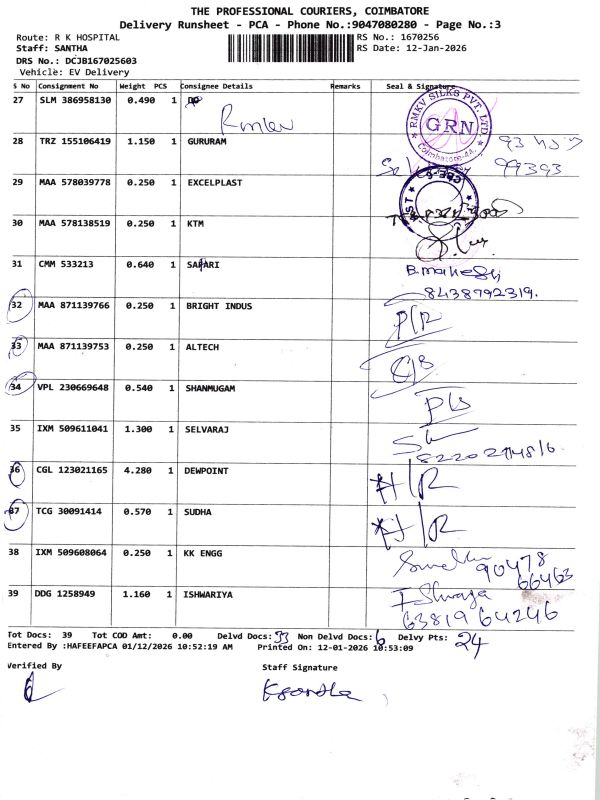 THE PROFESSIONAL COURIERS, COIMBATORE
Delivery Runsheet - PCA - Phone No.:9047080280 - Page No.:3
Route: R K HOSPITAL RS No.: 1670256
Staff: SANTHA RS Date: 12-Jan-2026
DRS No.: DCJB167025603
Vehicle: EV Delivery
S No Consignment No Weight PCS Consignee Details Remarks Seal & Signature
27 SLM 386958130 0.490 1
RMKV SILKS PVT. LTD.
GRN
Coimbatore-4
28 TRZ 155106419 1.150 1 GURURAM
99393
29 MAA 578039778 0.250 1 EXCELPLAST
30 MAA 578138519 0.250 1 KTM
31 CMM 533213 0.640 1 SAFARI B.mahesh
8438792319.
32 MAA 871139766 0.250 1 BRIGHT INDUS
33 MAA 871139753 0.250 1 ALTECH
34 VPL 230669648 0.540 1 SHANMUGAM
35 IXM 509611041 1.300 1 SELVARAJ
36 CGL 123021165 4.280 1 DEWPOINT
37 TCG 30091414 0.570 1 SUDHA
38 IXM 509608064 0.250 1 KK ENGG
90478
66463
39 DDG 1258949 1.160 1 ISHWARIYA
63819 64246
Tot Docs: 39 Tot COD Amt: 0.00 Delvd Docs: 33 Non Delvd Docs: 6 Delvy Pts: 24
Entered By :HAFEEFAPCA 01/12/2026 10:52:19 AM Printed On: 12-01-2026 10:53:09
Verified By Staff Signature